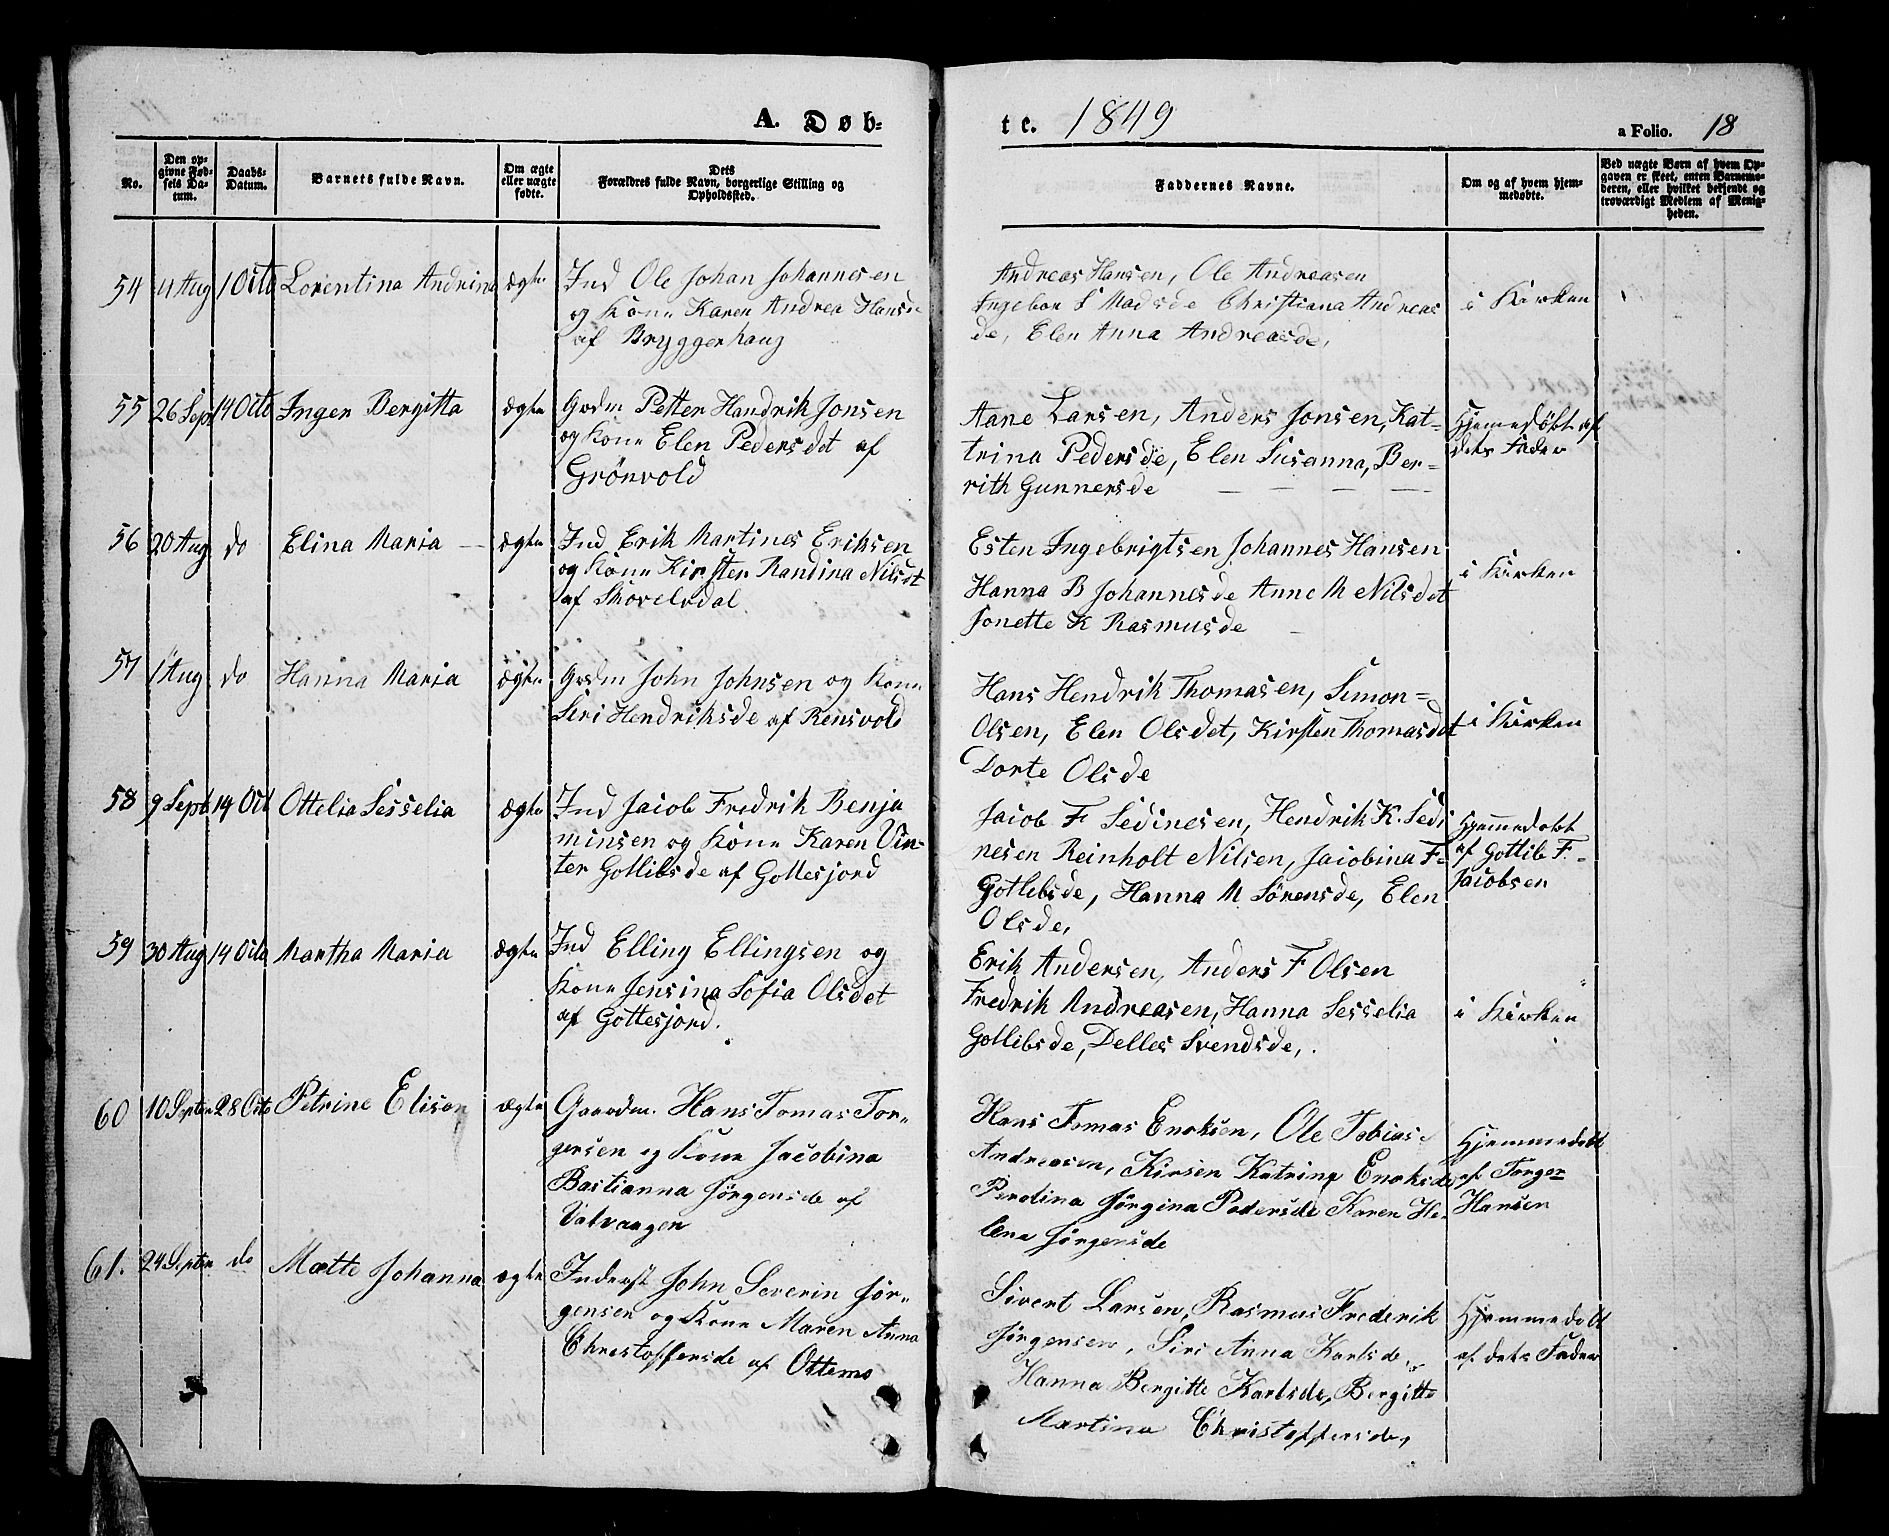 A. Døb=
te. 1849
a Folio. 18
No.
Den op-
givne Fød-
sels Da-
tum.
Daabs-
Datum.
Barnets fulde Navn.
Om ægte
eller uægte
fødte.
Dets
Forældres fulde Navn, borgerlige Stilling og
Opholdssted.
Faddernes Navne.
Om og af hvem hjem-
medøbte.
Ved uægte Børn af hvem Op-
gaven er skeet, enten Barnemo-
deren, eller hvilket bekjendt og
troværdigt Medlem af Menig-
heden.
54 4 Aug 1 Octo Lorentina Andrina ægte
Ind Ole Johan Johannesen
og Kone Karen Andrea Hansd
af Bryggerhaug
Andreas Hansen, Ole Andreasen
Ingebor S Madsde Christiana Andreas
de, Elen Anna Andreasde,
i Kirken
55 26 Sept 14 Octo Inger Bergitta ægte
Grdm Petter Handrik Jonsen
og Kone Elen Pedersdet af
Grönvold
Aane Larsen, Anders Jonsen, Kat=
trina Pedersde, Elen Susanna, Ber=
rith Gunnersde
Hjemedöbt af
dets Fader
56 20 Aug do Elina Maria ægte
Ind Erik Martines Eriksen
og Kone Kirsten Randina Nilsdt
af Skovelvdal
Esten Ingebrigtsen Johannes Hansen
Hanna B Johannesde Anne M Nilsdet
Jonette K Rasmusde
i Kirken
57 1 Aug do Hanna Maria ægte
Grdm John Johnsen og Kone
Siri Hendriksde af Rensvold
Hans Hendrik Thomasen, Simon=
Olsen, Elen Olsdet, Kirsten Thomasdet
Dorte Olsde
i Kirken
58 9 Sept 14 Oct Ottelia Sesselia ægte
Ind Jacob Fredrik Benja
minsen og Kone Karen Vin=
ter Gotlibsde af Gottesjord
Jacob F Sedinesen, Hendrik K. Sedi
nesen Reinholt Nilsen, Jacobina F=
Gotlebsde, Hanna M Sörensde, Elen
Olsde,
Hjemmedobt
af Gottlib F.
Jacobsen
59 30 Aug 14 Octo Martha Maria ægte
Ind Elling Ellingsen og
Kone Jensina Sofia Olsdet
af Gottesjord.
Erik Andersen, Anders F Olsen
Fredrik Andreasen, Hanna Sesselia
Gotlibsde, Delles Svendsde,
i Kirken
60 10 Septer 28 Octo Petrine Elison ægte
Gaardm. Hans Tomas Tor=
gersen og Kone Jacobina
Bastianna Jörgensde af
Valvaagen
Hans Tomas Enoksen, Ole Tobias
Andreasen, Kirsen Katrina Enoksde
Perolina Jörgina Pedersde Karen He=
lena Jörgensde
Hjemmedobt
af Torger
Hansen
61. 24 Septer do Mætte Johanna ægte
Inderst John Severin Jör=
gensen og Kone Maren Anna
Christoffersde af Ottemo
Sivert Larsen, Rasmus Frederik
Jörgensen, Siri Anna Karlsde,
Hanna Bergitte Karlsde, Bergitte
Martina Christoffersde,
Hjemmedobt
af dets Fader